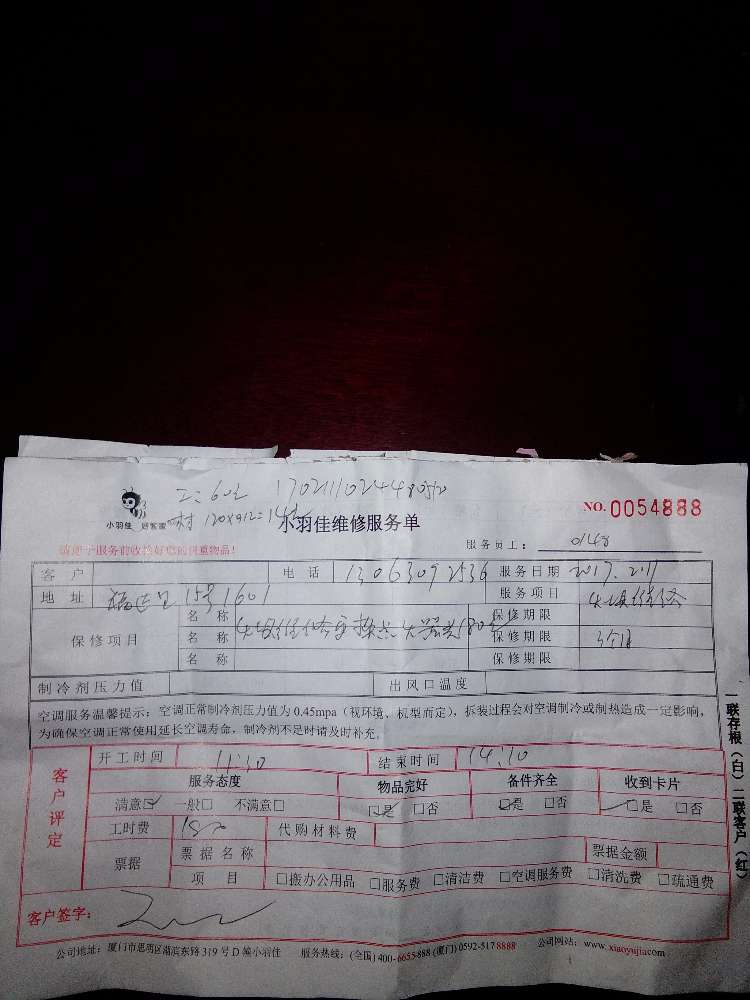 工: 60元 17021102448
小羽佳 好管家
NO. 0054888
小羽佳维修服务单
服务员工: 0148
请您于服务前收拾好您的贵重物品!
客户 电话 13063092536 服务日期 2017.2.11
地址 15号1601 服务项目
保修项目 名称 保修期限
名称 保修期限 3个月
名称 保修期限
制冷剂压力值 出风口温度
空调服务温馨提示:空调正常制冷剂压力值为0.45mpa(视环境、机型而定),拆装过程会对空调制冷或制热造成一定影响,
为确保空调正常使用延长空调寿命,制冷剂不足时请及时补充。
客户评定
开工时间 11:30 结束时间 14:10
服务态度 物品完好 备件齐全 收到卡片
满意☑ 一般□ 不满意□ ☑是 □否 ☑是 □否 ☑是 □否
工时费 180 代购材料费
票据 票据名称 票据金额
项目 □搬办公用品 □服务费 □清洁费 □空调服务费 □清洗费 □疏通费
客户签字:
公司地址:厦门市思明区湖滨东路319号D幢小羽佳 服务热线:(全国)400-6655-888 (厦门)0592-5178888 公司网站:www.xiaoyujia.com
一联存根(白)二联客户(红)